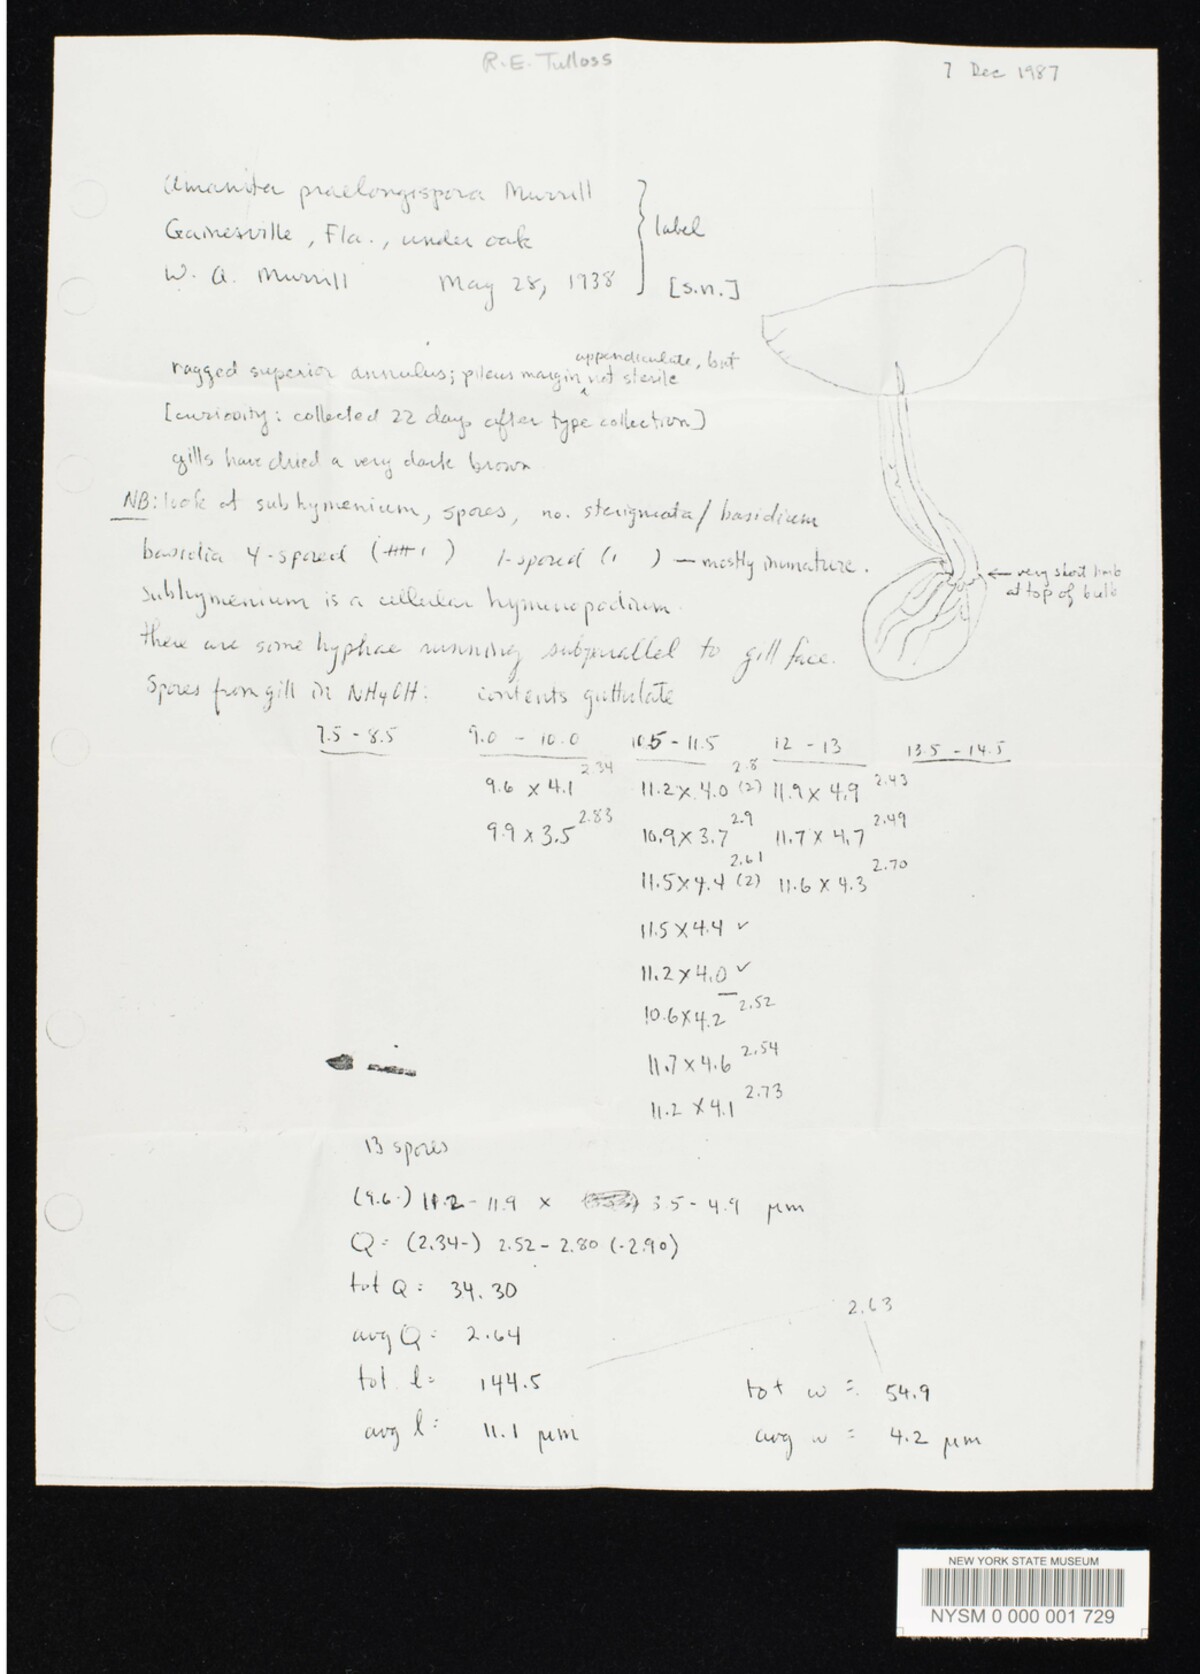 R.E. Tulloss
7 Dec 1987
Amanita praelongispora Murrill
Gainesville, Fla., under oak
W. A. Murrill May 28, 1938
label
[s.n.]
appendiculate, but
ragged superior annulus; pileus margin ^ not sterile
[curiosity: collected 22 days after type collection]
gills have dried a very dark brown
NB: look at subhymenium, spores, no. sterigmata/basidium
basidia 4-spored ( ) 1-spored ( ) — mostly immature.
← very short limb
at top of bulb
subhymenium is a cellular hymenopodium.
there are some hyphae running subparallel to gill face.
Spores from gill in NH4OH: contents guttulate
7.5 - 8.5 9.0 - 10.0 10.5 - 11.5 12 - 13 13.5 - 14.5
9.6 x 4.1 2.34 11.2 x 4.0 2.8 (2) 11.9 x 4.9 2.43
9.9 x 3.5 2.83 10.9 x 3.7 2.9 11.7 x 4.7 2.49
11.5 x 4.4 2.61 (2) 11.6 x 4.3 2.70
11.5 x 4.4 ✓
11.2 x 4.0 ✓
10.6 x 4.2 2.52
11.7 x 4.6 2.54
11.2 x 4.1 2.73
13 spores
(9.6-) 11.2 - 11.9 x 3.5 - 4.9 μm
Q = (2.34-) 2.52 - 2.80 (-2.90)
tot Q = 34.30
2.63
avg Q = 2.64
tot l = 144.5 tot w = 54.9
avg l = 11.1 μm avg w = 4.2 μm
NEW YORK STATE MUSEUM
NYSM 0 000 001 729